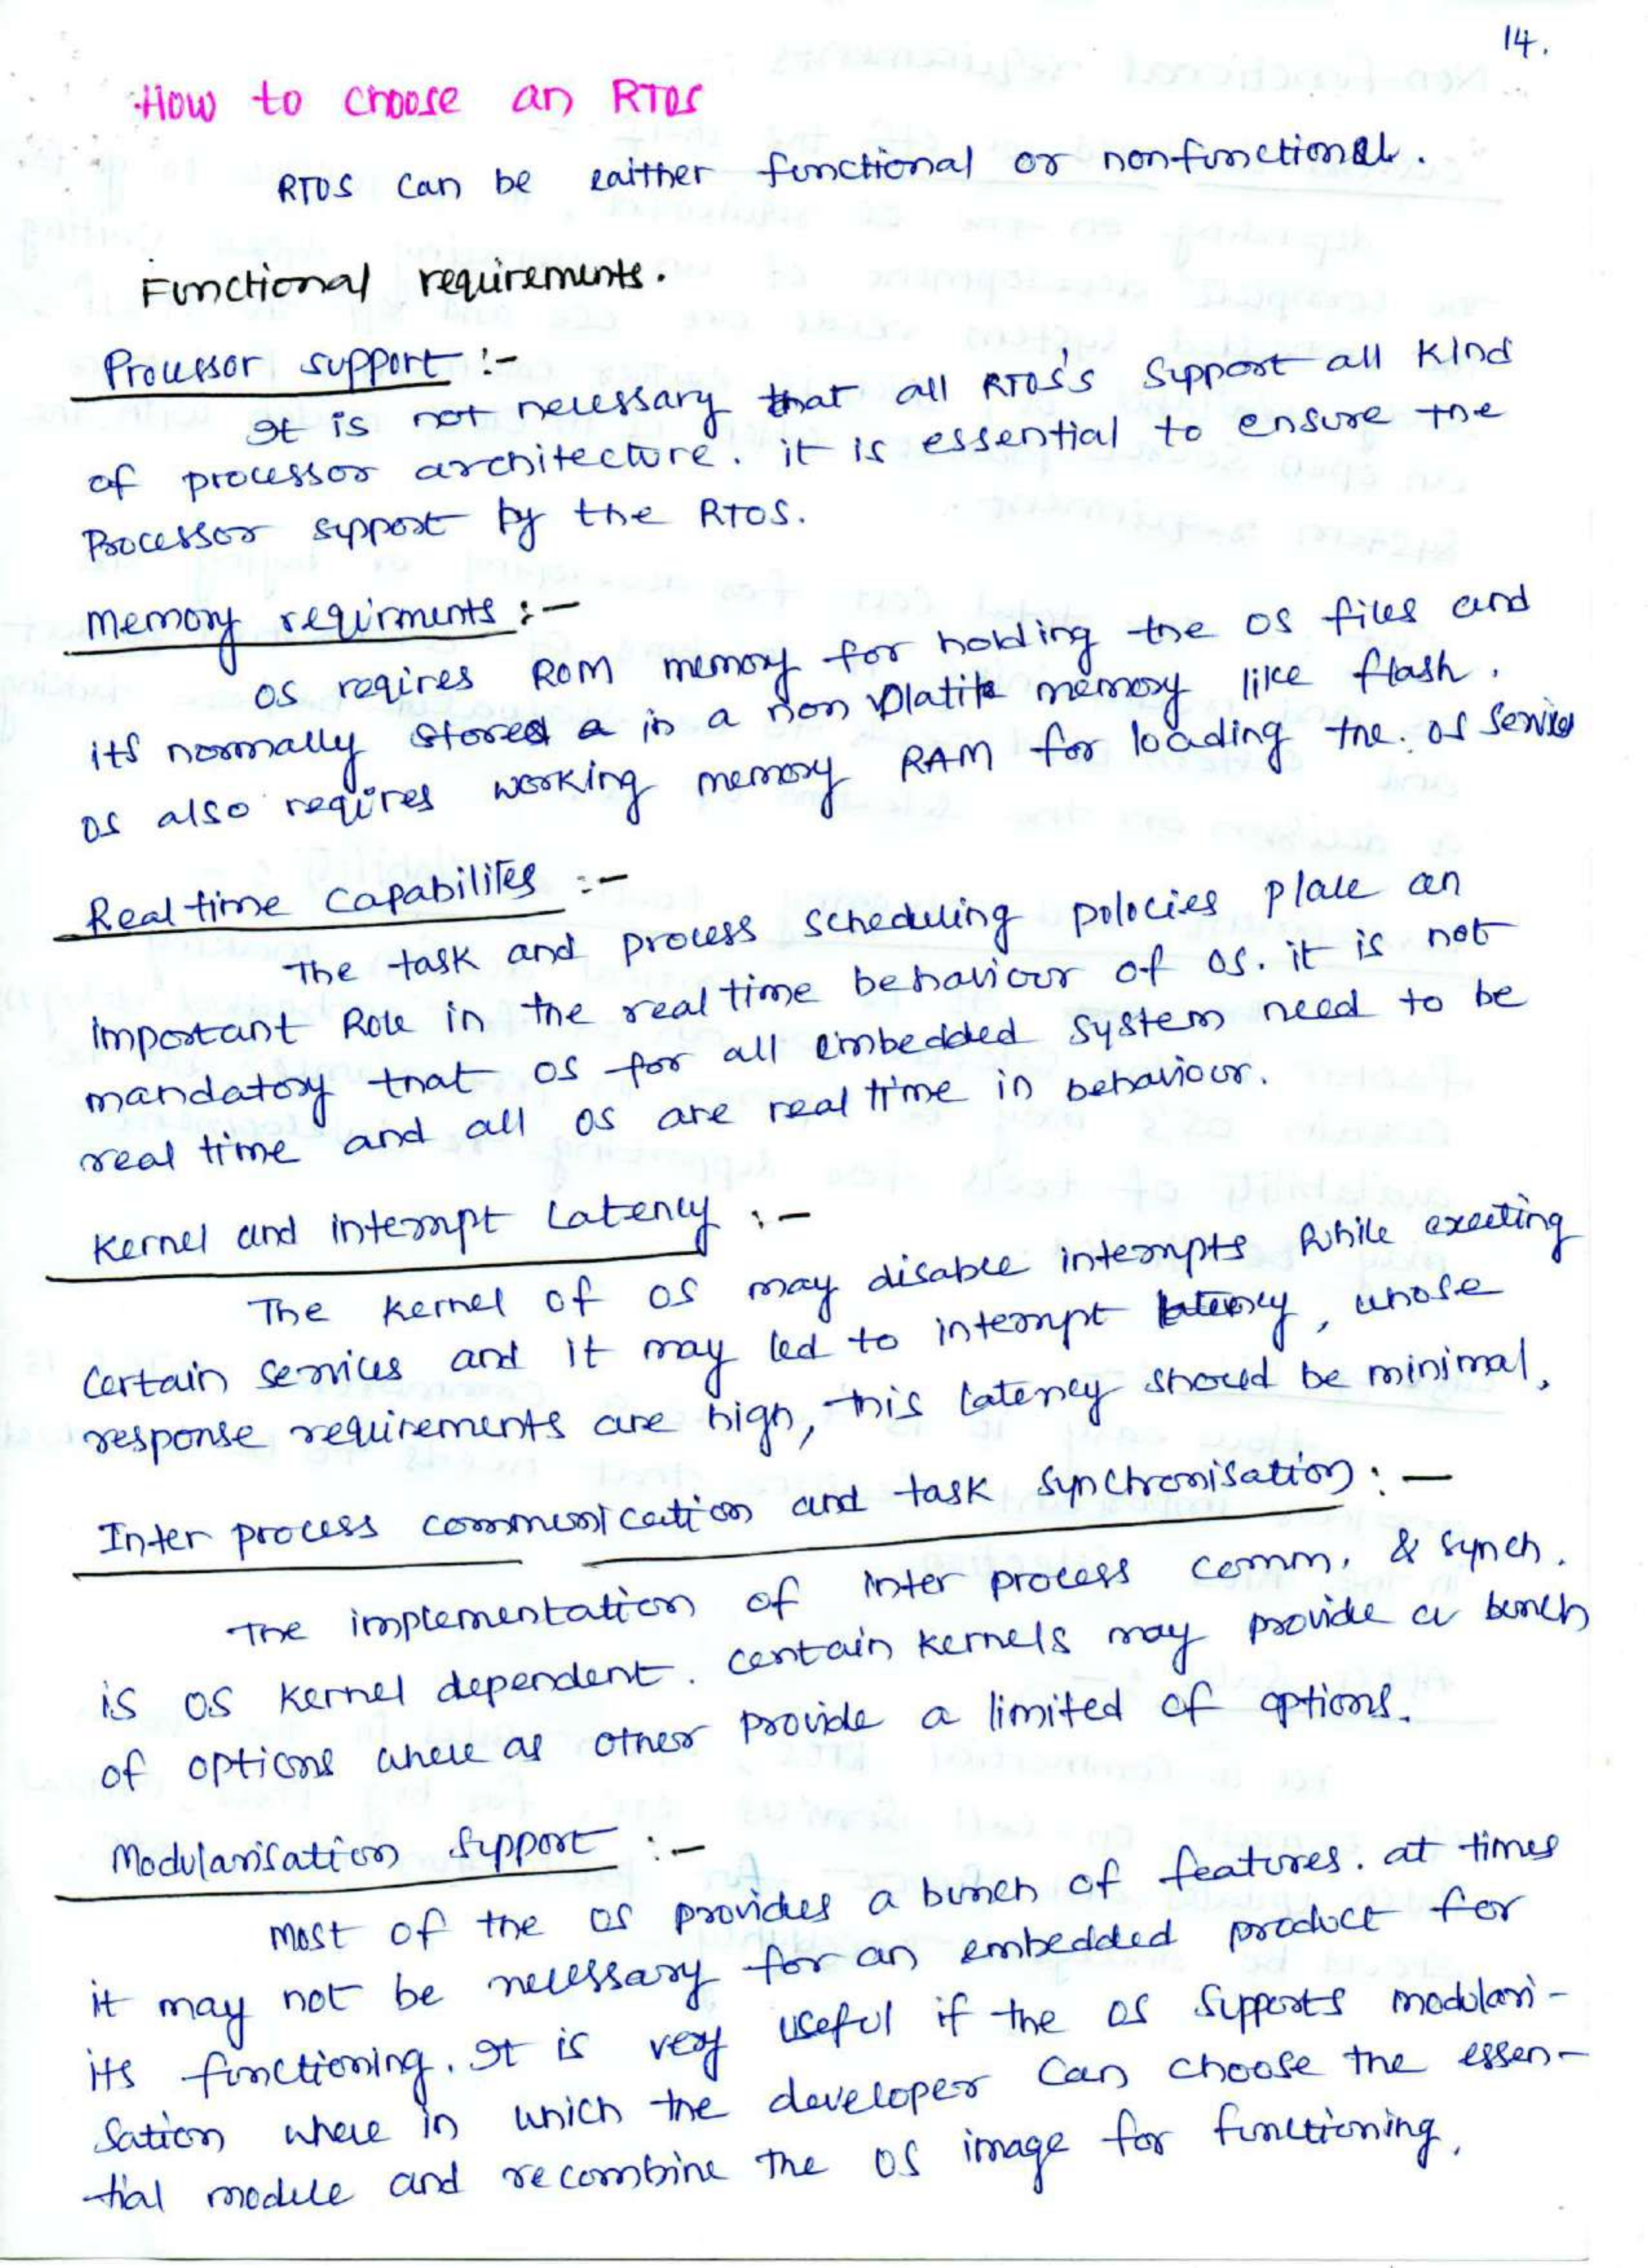 14.
How to choose an RTOS
RTOS can be eaither functional or nonfunctional.
Functional requirements.
Processor support :-
It is not necessary that all RTOS's support all kind
of processor architecture. it is essential to ensure the
Processor support by the RTOS.
Memory requirments :-
OS reqires ROM memory for holding the OS files and
its normally stored a in a non volatile memory like flash.
OS also reqires working memory RAM for loading the. OS service
Real time capabilites :-
The task and process scheduling polocies place an
important Role in the real time behaviour of OS. it is not
mandatory that OS for all embedded system need to be
real time and all OS are real time in behaviour.
Kernel and interrupt Latency :-
The kernel of OS may disable interrupts while exeecting
certain services and it may led to interrupt latency, whose
response requirements are high, this latency should be minimal.
Inter process communication and task synchronisation :-
The implementation of inter process comm. & synch.
is OS kernel dependent. certain kernels may provide a bunch
of options where as other provide a limited of options.
Modularisation support :-
Most of the OS provides a bunch of features. at times
it may not be necessary for an embedded product for
its functioning. It is very useful if the OS supports modulari-
sation where in which the developer can choose the essen-
tial module and recombine the OS image for functioning.